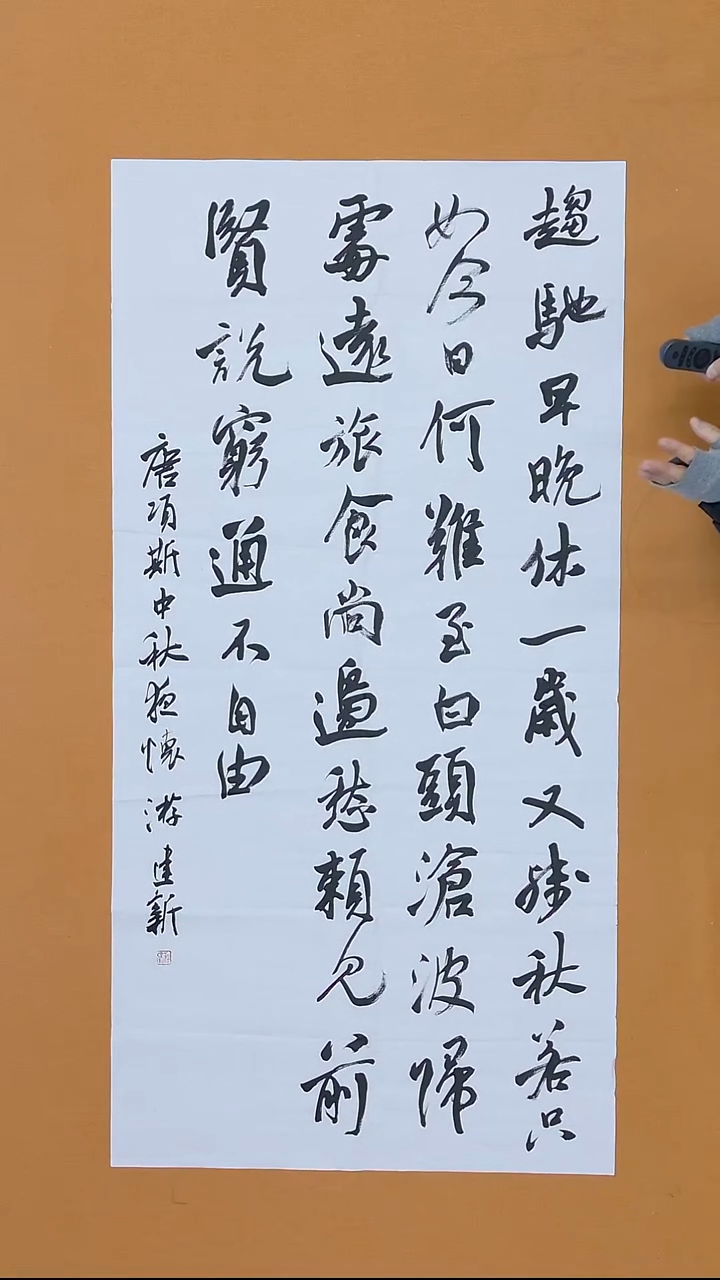 趨馳早晚休一歲又殘秋若只
如今日何難至白頭滄波歸
處遠旅食尚邊愁賴見前
賢說窮通不自由
唐項斯中秋夜懷 游建新